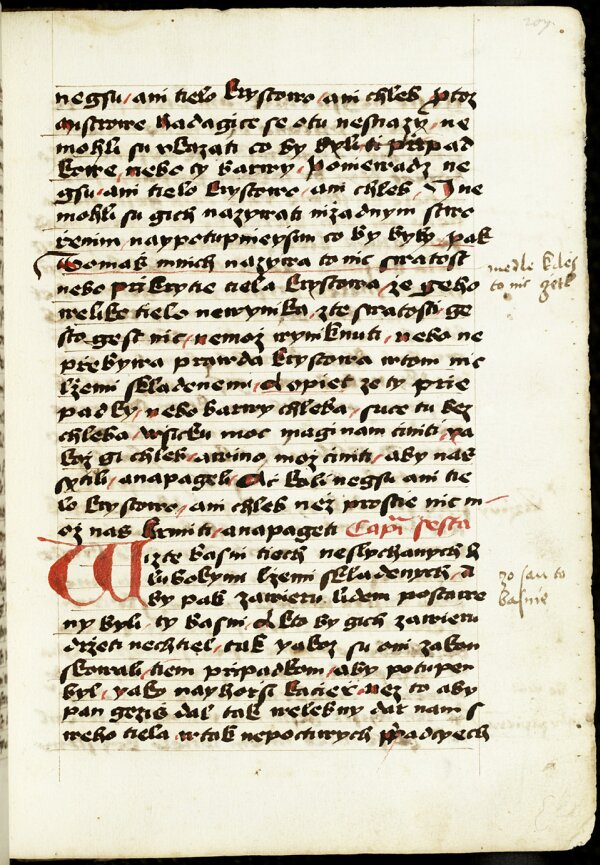 207
negsu ani tielo krystowo ani chleb ptoz
mistrowe hadagice se otu nesnazy ne
mohli su vkazati co by byli ti případ
kowe nebo ty barwy Poniewadz ne
gsu ani tielo krystowo ani chleb J ne
mohli su gich nazywati nižadnym stwo
řenim naypotupnieyssim co by bylo pak
Tomak mnich nazywa to nic swatost
nebo přikrytie tiela krystowa že geho
welike tielo newynika zte swatosti ge
sto gest nic nemoz wymknuti nebo ne
přebywa prawda krystowa wtom nic
lžemi skladenem A opiet ze ty přie
padky nebo barwy chleba suce tu bez
chleba wssicku moc magi nam činiti ya
koz gi chleb awino moz činiti aby nas
sytili anapageli Ač koli negsu ani tie
lo krystowo ani chleb nez prostie nic m
oz nas krmiti anapageti Capi. sesta
Wizte basni tiech neslychanych h
lubokym lžemi skladenych A
by pak zawieru lidem postawe
ny byli ty basni A kto by gich zawieru
držeti nechtiel tak yakoz su oni zakon
skowali tiem případkom aby potupen
byl yako nayhorsi kacieř nez to aby
pan gezis dal tak welebny dar nam s
weho tiela wtak nepoctiwych případcyech
medle kdes
to nic
zo sau to
basnie